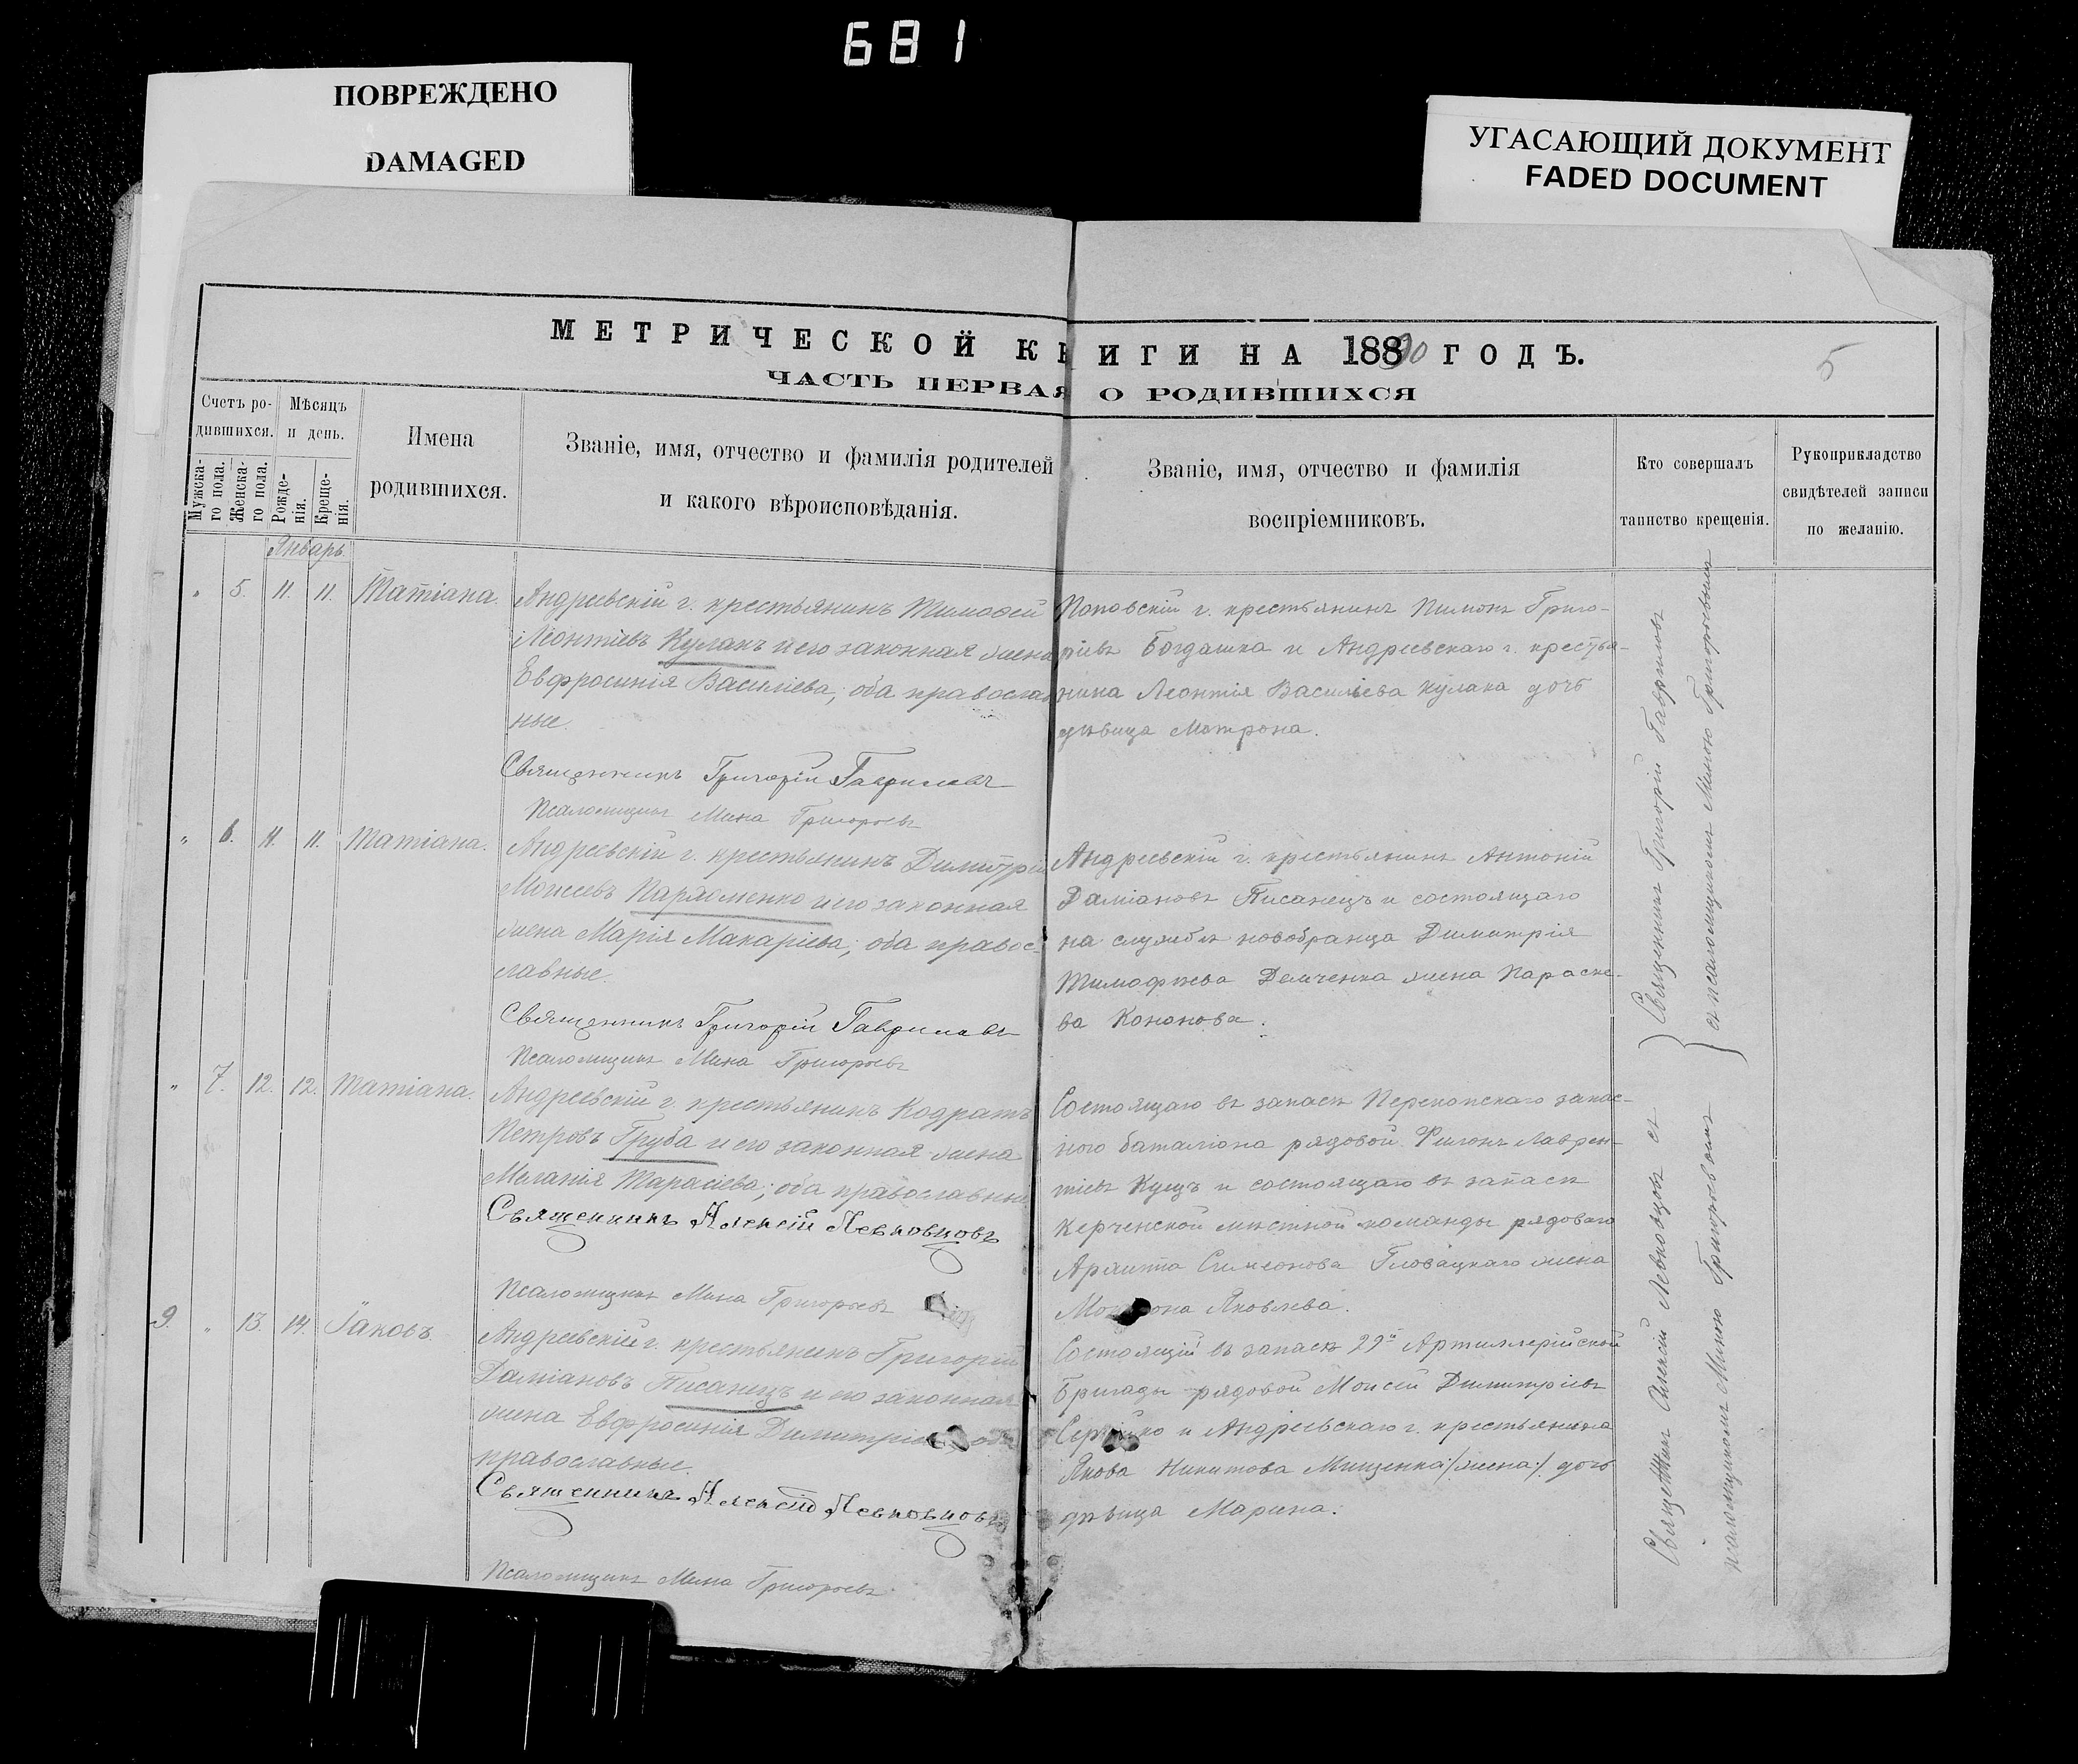 681
ПОВРЕЖДЕНО
DAMAGED
УГАСАЮЩИЙ ДОКУМЕНТ
FADED DOCUMENT
МЕТРИЧЕСКОЙ КНИГИ НА 1890 ГОДЪ.
5
ЧАСТЬ ПЕРВАЯ О РОДИВШИХСЯ
Счетъ ро-
дившихся.
Мужска-
го пола.
Женска-
го пола.
Мѣсяцъ
и день.
Рожде-
нія.
Креще-
нія.
Имена
родившихся.
Званіе, имя, отчество и фамилія родителей
и какого вѣроисповѣданія.
Званіе, имя, отчество и фамилія
воспріемниковъ.
Кто совершалъ
таинство крещенія.
Рукоприкладство
свидѣтелей записи
по желанію.
Январь.
" 5. 11. 11. Татіана.
Андреевскій г. крестьянинъ Тимофей
Леонтіевъ Кулакъ и его законная жена
Евфросинія Василіева; оба православ
ные.
Священникъ Григорій Гавриловъ
Псаломщикъ Мина Григорьевъ
Поповскій г. крестьянинъ Пимонъ Григо-
ріевъ Богдашка и Андреевскаго г. крестья-
нина Леонтія Василіева Кулака дочь
дѣвица Мотрона.
" 6. 11. 11. Татіана.
Андреевскій г. крестьянинъ Димитрій
Моисеевъ Пархоменко и его законная
жена Марія Макаріева; оба правос-
лавные.
Священникъ Григорій Гавриловъ
Псаломщикъ Мина Григорьевъ
Андреевскій г. крестьянинъ Антоній
Даміановъ Писанецъ и состоящаго
на службѣ новобранца Димитрія
Тимофѣева Демченка жена Параске-
ва Кононова.
" 7. 12. 12. Татіана.
Андреевскій г. крестьянинъ Кодратъ
Петровъ Груба и его законная жена
Меланія Тарасіева; оба православные
Священникъ Алексій Левковцовъ
Псаломщикъ Мина Григорьевъ
Состоящаго въ запасѣ Перекопскаго запас-
ного баталіона рядовой Филонъ Лаврен-
тіевъ Кущъ и состоящаго въ запасѣ
Керченской мѣстной команды рядоваго
Симеонова Гловацкаго жена
Яковлева.
9. " 13. 14. Іаковъ
Андреевскій г. крестьянинъ Григорій
Даміановъ Писанецъ и его законная
жена Евфросинія
православные.
Священникъ Алексій Левковцовъ
Псаломщикъ Мина Григорьевъ
Состоящій въ запасѣ 29й Артиллерійской
Бригады рядовой Моисей Димитріевъ
и Андреевскаго г. крестьянина
Якова Никитова Мищенка /:жена:/ дочь
дѣвица Марина.
Священникъ Григорій Гавриловъ
съ псаломщикомъ Миною Григорьевымъ
Священникъ Алексій Левковцовъ съ
псаломщикомъ Миною Григорьевымъ